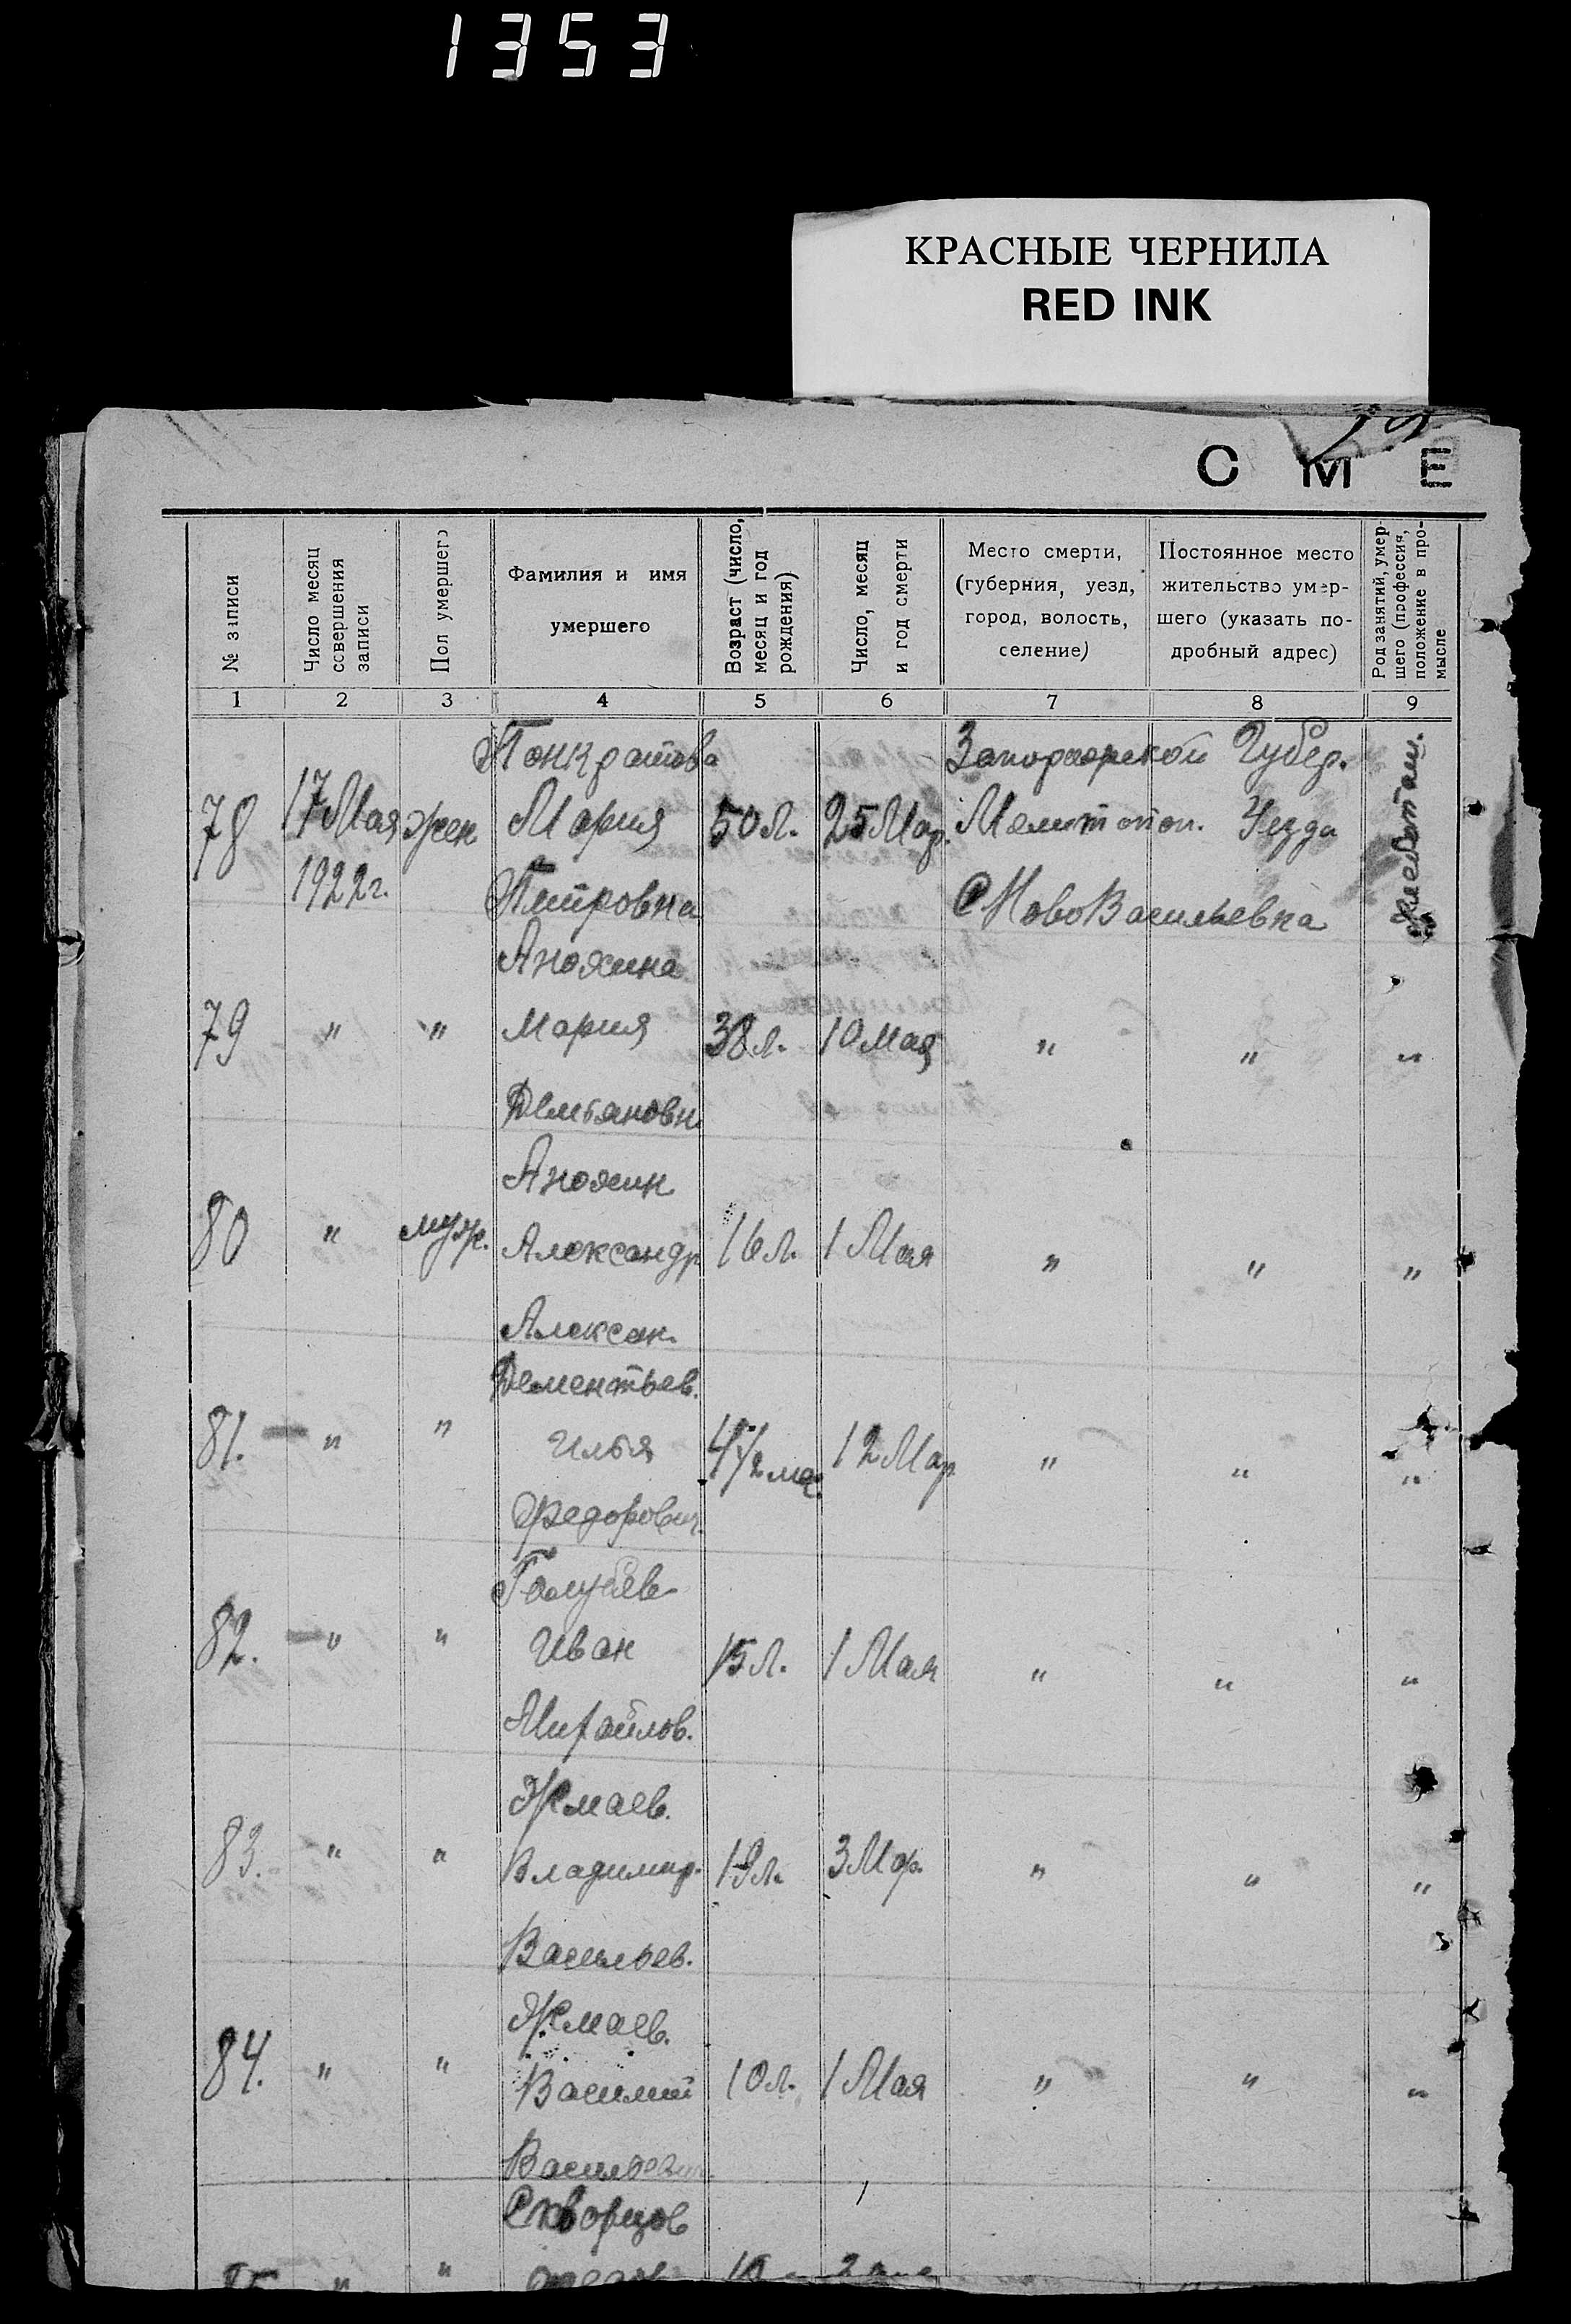 1353
КРАСНЫЕ ЧЕРНИЛА
RED INK
С М Е
№ записи
Число месяц совершения записи
Пол умершего
Фамилия и имя умершего
Возраст (число, месяц и год рождения)
Число, месяц и год смерти
Место смерти, (губерния, уезд, город, волость, селение)
Постоянное место жительство умер-шего (указать по-дробный адрес)
Род занятий, умер-шего (профессия, положение в про-мысле
1 2 3 4 5 6 7 8 9
Понкратова Запорожской Губер.
78 17 Мая жен. Мария 50 л. 25 Мар. Мелитопол. Уезда Хлебопаш.
1922 г. Питровна С Ново Васильевка
Анохина
79 " " Мария 38 л. 10 Мая " " "
Демьяновн
Анохин
80 " муж. Александр 16 л. 1 Мая " " "
Алексан.
Дементьев.
81. " " Илья 4 1/2 мес. 12 Мар " " "
Федорович.
Голубев
82. " " Иван 15 л. 1 Мая " " "
Михайлов.
Жмаев.
83. " " Владимир. 19 л. 3 Мар. " " "
Васильев.
Жмаев.
84. " " Василий 10 л. 1 Мая " " "
Васильевич
Скворцов
85 " "